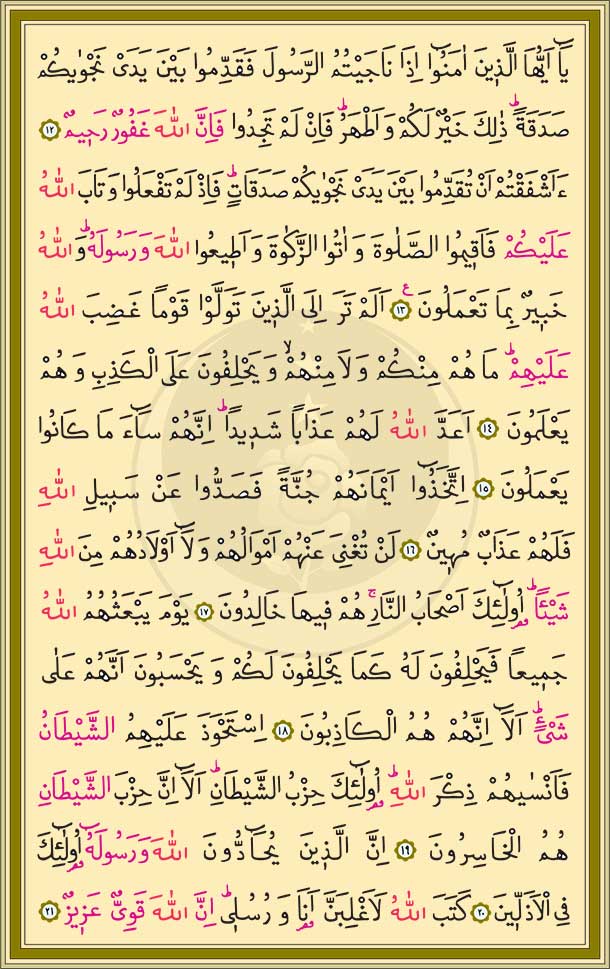 يَٓا اَيُّهَا الَّذٖينَ اٰمَنُٓوا اِذَا نَاجَيْتُمُ الرَّسُولَ فَقَدِّمُوا بَيْنَ يَدَىْ نَجْوٰيكُمْ
صَدَقَةًؕ ذٰلِكَ خَيْرٌ لَكُمْ وَاَطْهَرُؕ فَاِنْ لَمْ تَجِدُوا فَاِنَّ اللّٰهَ غَفُورٌ رَحٖيمٌ ﴿١٢﴾
ءَاَشْفَقْتُمْ اَنْ تُقَدِّمُوا بَيْنَ يَدَىْ نَجْوٰيكُمْ صَدَقَاتٍؕ فَاِذْ لَمْ تَفْعَلُوا وَتَابَ اللّٰهُ
عَلَيْكُمْ فَاَقٖيمُوا الصَّلٰوةَ وَاٰتُوا الزَّكٰوةَ وَاَطٖيعُوا اللّٰهَ وَرَسُولَهُؕ وَاللّٰهُ
خَبٖيرٌ بِمَا تَعْمَلُونَ ﴿١٣﴾ ع اَلَمْ تَرَ اِلَى الَّذٖينَ تَوَلَّوْا قَوْمًا غَضِبَ اللّٰهُ
عَلَيْهِمْؕ مَا هُمْ مِنْكُمْ وَلَا مِنْهُمْۙ وَيَحْلِفُونَ عَلَى الْكَذِبِ وَهُمْ
يَعْلَمُونَ ﴿١٤﴾ اَعَدَّ اللّٰهُ لَهُمْ عَذَابًا شَدٖيدًاؕ اِنَّهُمْ سَٓاءَ مَا كَانُوا
يَعْمَلُونَ ﴿١٥﴾ اِتَّخَذُٓوا اَيْمَانَهُمْ جُنَّةً فَصَدُّوا عَنْ سَبٖيلِ اللّٰهِ
فَلَهُمْ عَذَابٌ مُهٖينٌ ﴿١٦﴾ لَنْ تُغْنِىَ عَنْهُمْ اَمْوَالُهُمْ وَلَٓا اَوْلَادُهُمْ مِنَ اللّٰهِ
شَيْئًاؕ اُو۬لٰٓئِكَ اَصْحَابُ النَّارِۚ هُمْ فٖيهَا خَالِدُونَ ﴿١٧﴾ يَوْمَ يَبْعَثُهُمُ اللّٰهُ
جَمٖيعًا فَيَحْلِفُونَ لَهُ كَمَا يَحْلِفُونَ لَكُمْ وَيَحْسَبُونَ اَنَّهُمْ عَلٰى
شَىْءٍؕ اَلَٓا اِنَّهُمْ هُمُ الْكَاذِبُونَ ﴿١٨﴾ اِسْتَحْوَذَ عَلَيْهِمُ الشَّيْطَانُ
فَاَنْسٰيهُمْ ذِكْرَ اللّٰهِؕ اُو۬لٰٓئِكَ حِزْبُ الشَّيْطَانِؕ اَلَٓا اِنَّ حِزْبَ الشَّيْطَانِ
هُمُ الْخَاسِرُونَ ﴿١٩﴾ اِنَّ الَّذٖينَ يُحَٓادُّونَ اللّٰهَ وَرَسُولَهُٓ اُو۬لٰٓئِكَ
فِى الْاَذَلّٖينَ ﴿٢٠﴾ كَتَبَ اللّٰهُ لَاَغْلِبَنَّ اَنَا۬ وَرُسُلٖىؕ اِنَّ اللّٰهَ قَوِىٌّ عَزٖيزٌ ﴿٢١﴾